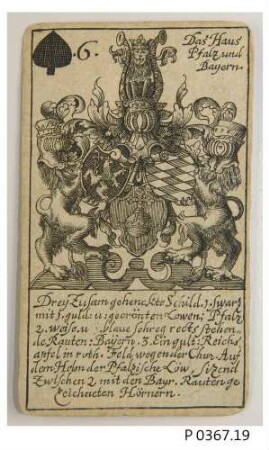 .6.
Das Haus
Pfalz und
Bayern.
Dreÿ zusam gehenckte Schild. 1. swartz
mit 1. guld: u: gecrönten Löwen; Pfaltz
2. weiss u: blaue schreg rechts stehen-
de Rauten: Bayern. 3. Ein gult: Reichs
apfel in roth. Feld, wegen der Chur. Auf
dem Helm der Pfälzische Löw, sizend
Zwischen 2. mit den Bayr. Rauten ge
zeichneten Hörnern.
P 0367.19